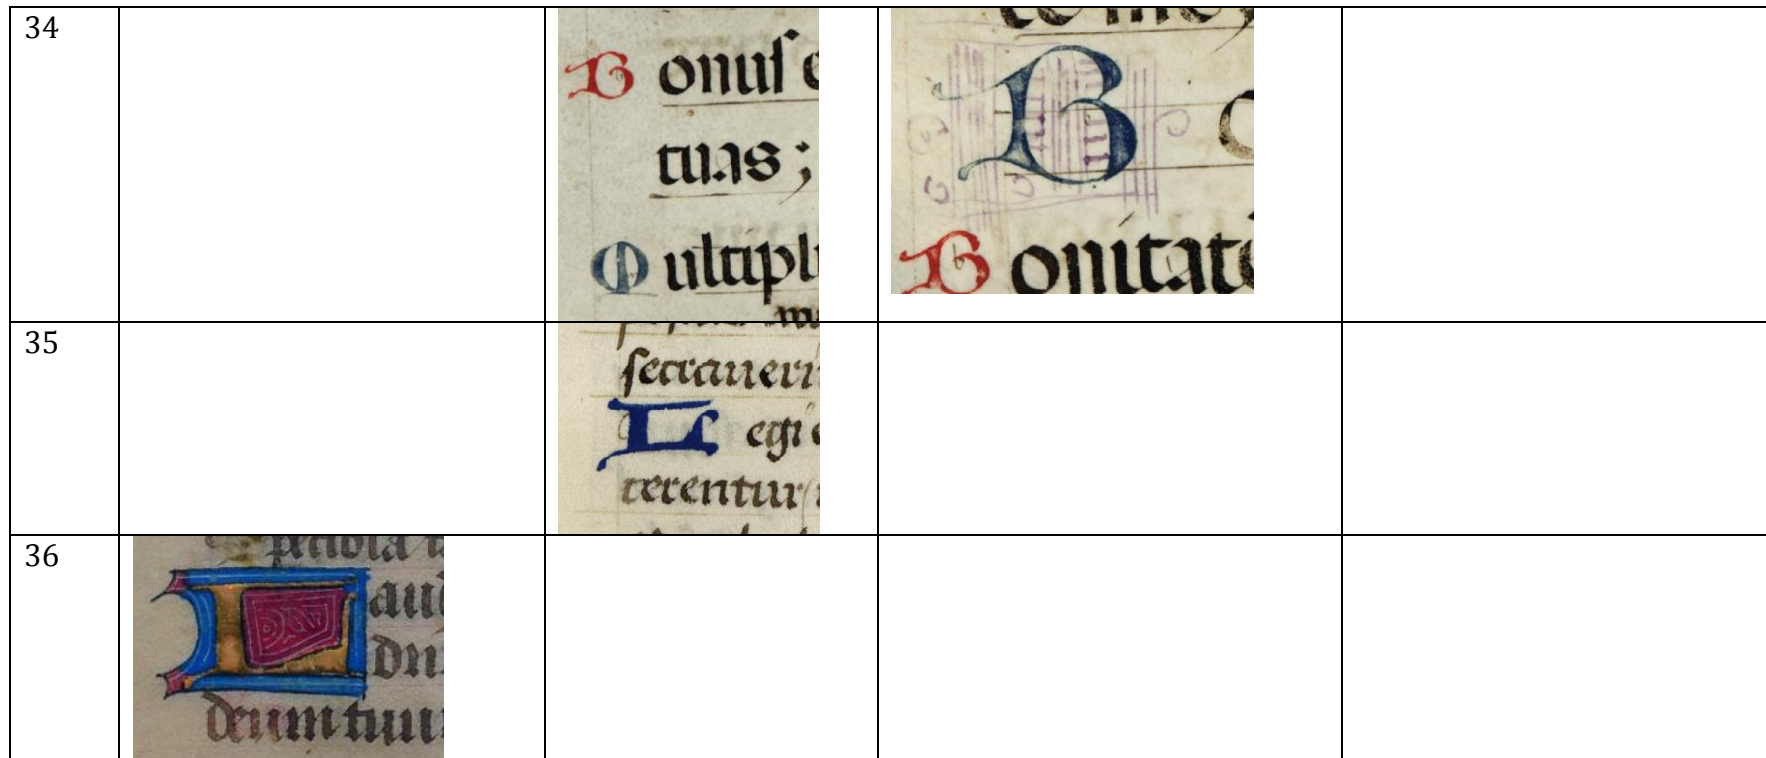 34
B onuſ e
tuas ;
M ultipli
B O
B onitate
35
ſecraueri
L egi e
terentur
36
L aud
dn
deum tuu